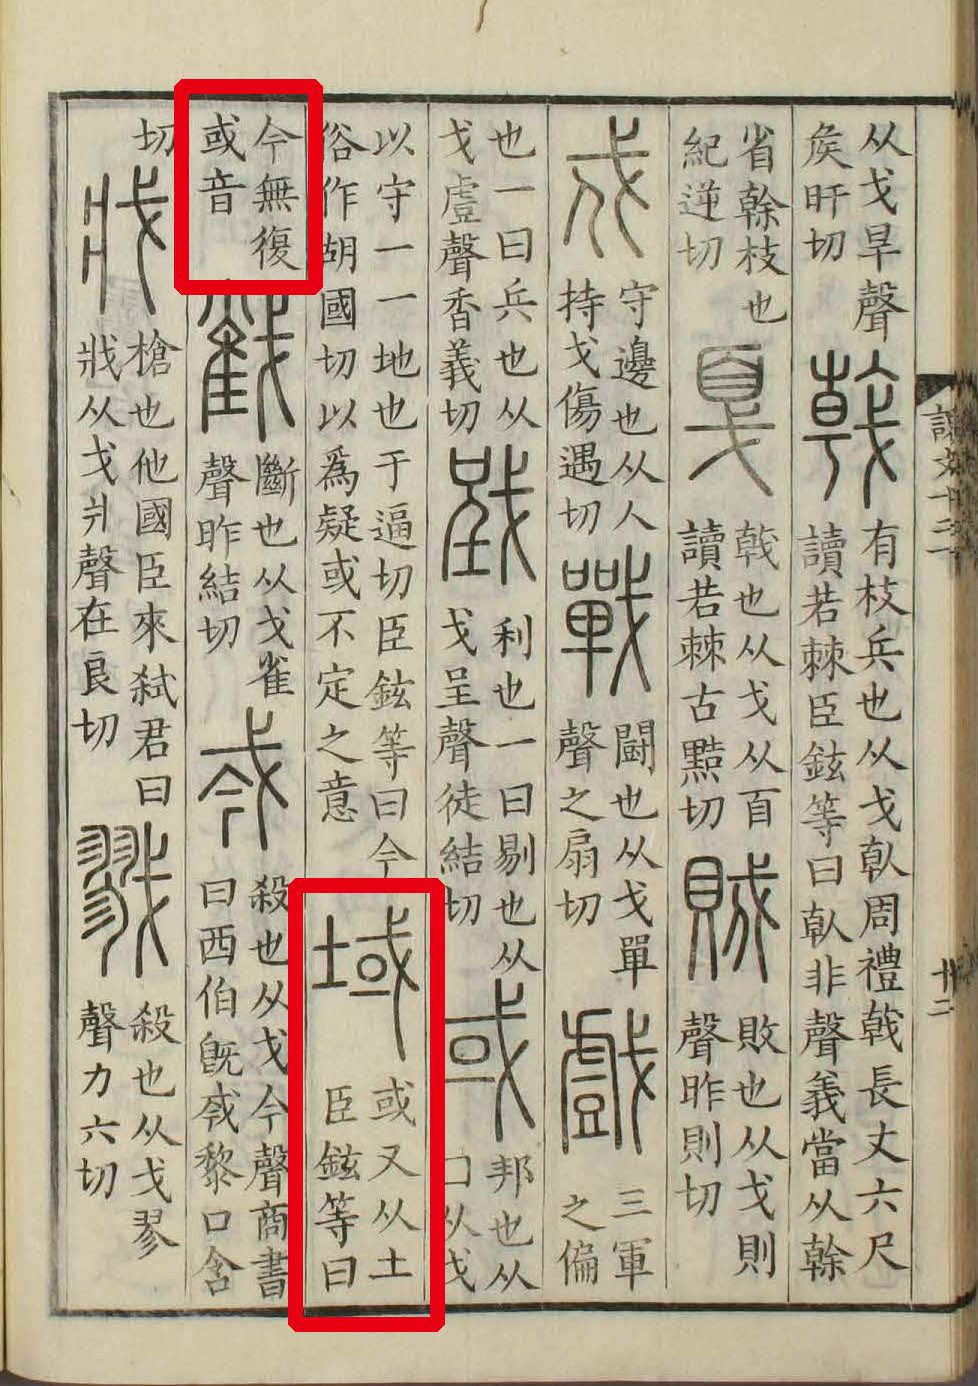 从戈旱聲
矦旰切
戟
有枝兵也从戈倝周禮戟長丈六尺
讀若棘臣鉉等曰倝非聲義當从榦
省榦枝也
紀逆切
戛
戟也从戈从百
讀若棘古黠切
賊
敗也从戈則
聲昨則切
戍
守邊也从人
持戈傷遇切
戰
鬭也从戈單
聲之扇切
戲
三軍
之偏
也一曰兵也从
戈䖒聲香義切
戜
利也一曰剔也从
戈呈聲徒結切
或
邦也从
囗从戈
以守一一地也于逼切臣鉉等曰今
俗作胡國切以爲疑或不定之意
域
或又从土
臣鉉等曰
今無復
或音
截
斷也从戈雀
聲昨結切
𢦟
殺也从戈今聲商書
曰西伯旣𢦟黎口含
切
戕
槍也他國臣來弒君曰
戕从戈爿聲在良切
戮
殺也从戈翏
聲力六切